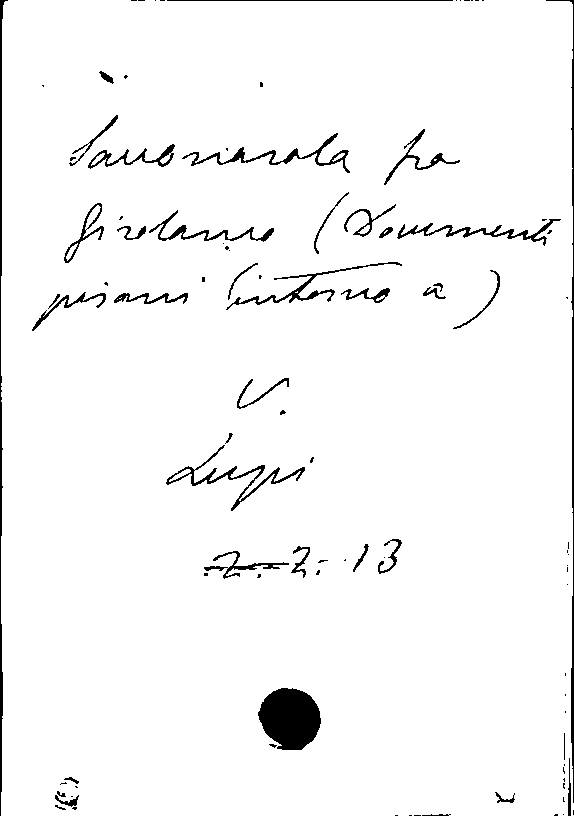 Savonarola fra
Girolamo (Documenti
pisani intorno a)
V.
Lupi
Z. Z. 13